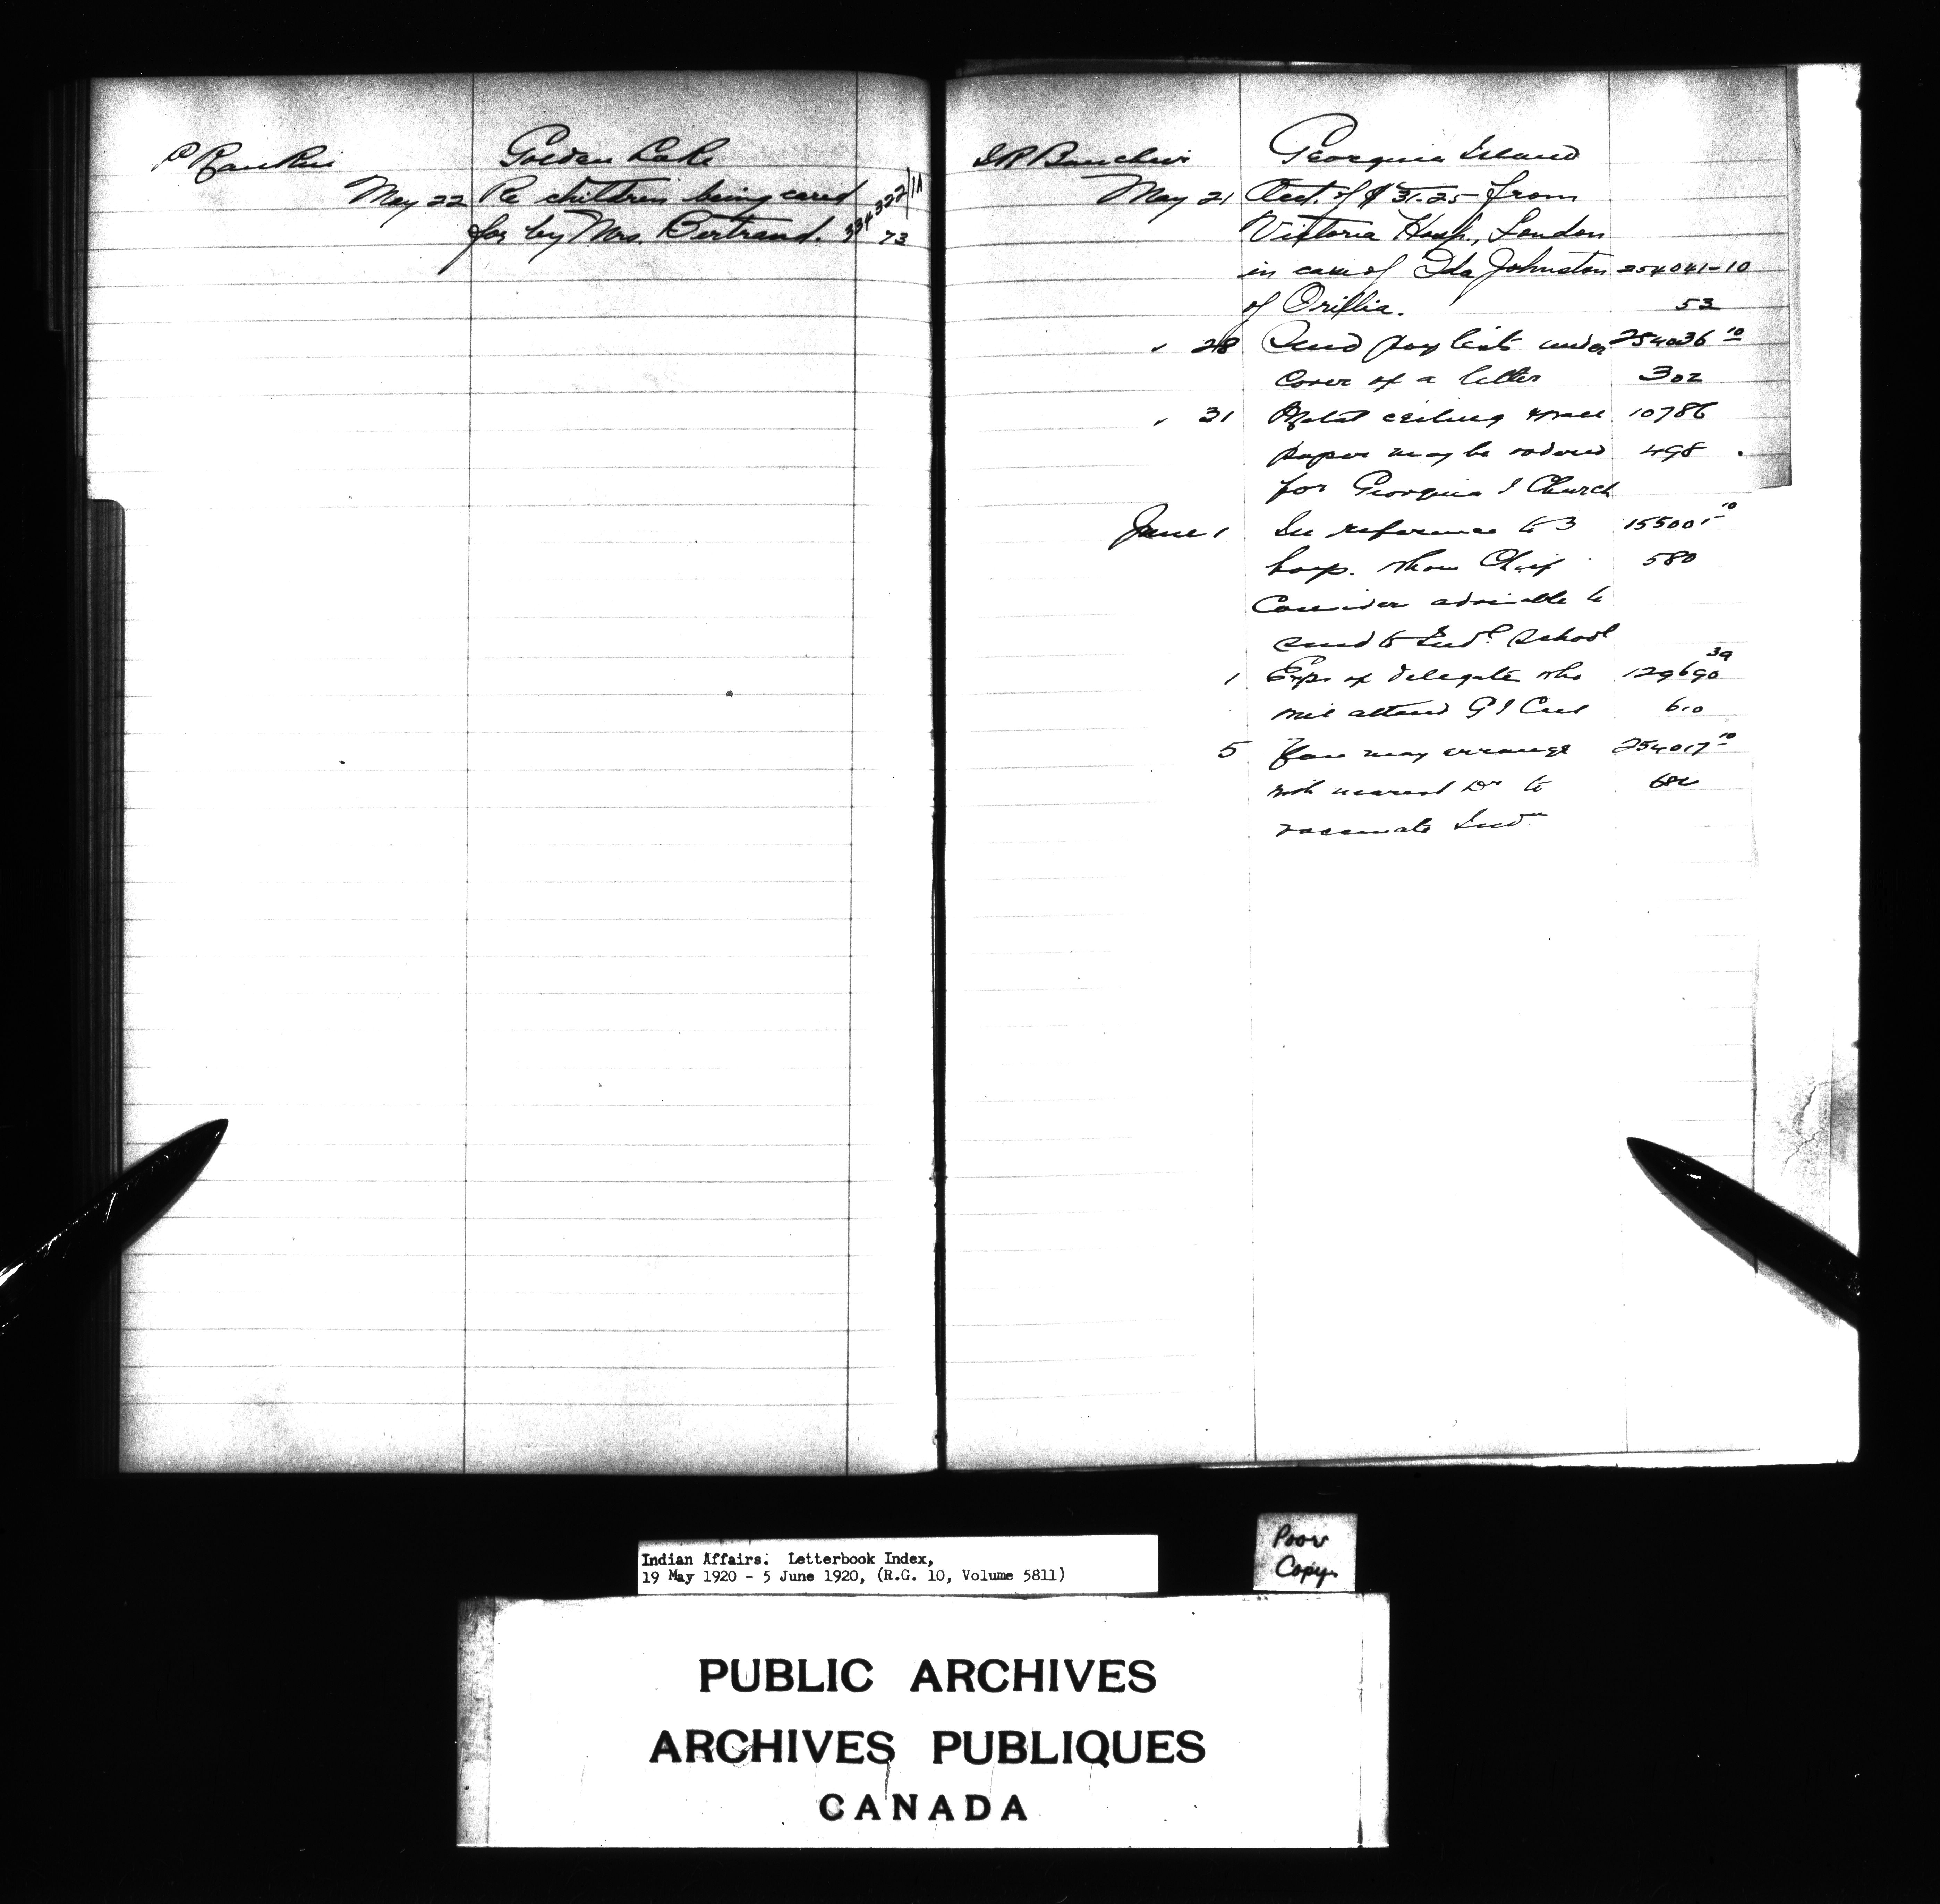 Rankin Golden Lake
May 22 Re children being cared 334322/1A
for by Mrs. Bertrand. 73
Georgina Island
May 21 Acct. of $31.25 from
Victoria Hosp., London
in case of Ida Johnston 254041-10
of Orillia. 53
" 28 Send pay lists under 254036 10
cover of a letter 302
" 31 Metal ceiling 10786
paper may be ordered 498
for Georgina I Church
June 1 In reference to 3 15500 10
boys. whom Chief 580
Consider advisable to
send to Indl. School
1 Exps of delegate who 129690 39
will attend G I Cncl 610
5 You may arrange 254017 10
with nearest Dr to 682
vaccinate Indns
Indian Affairs. Letterbook Index,
19 May 1920 - 5 June 1920, (R.G. 10, Volume 5811)
Poor
Copy.
PUBLIC ARCHIVES
ARCHIVES PUBLIQUES
CANADA